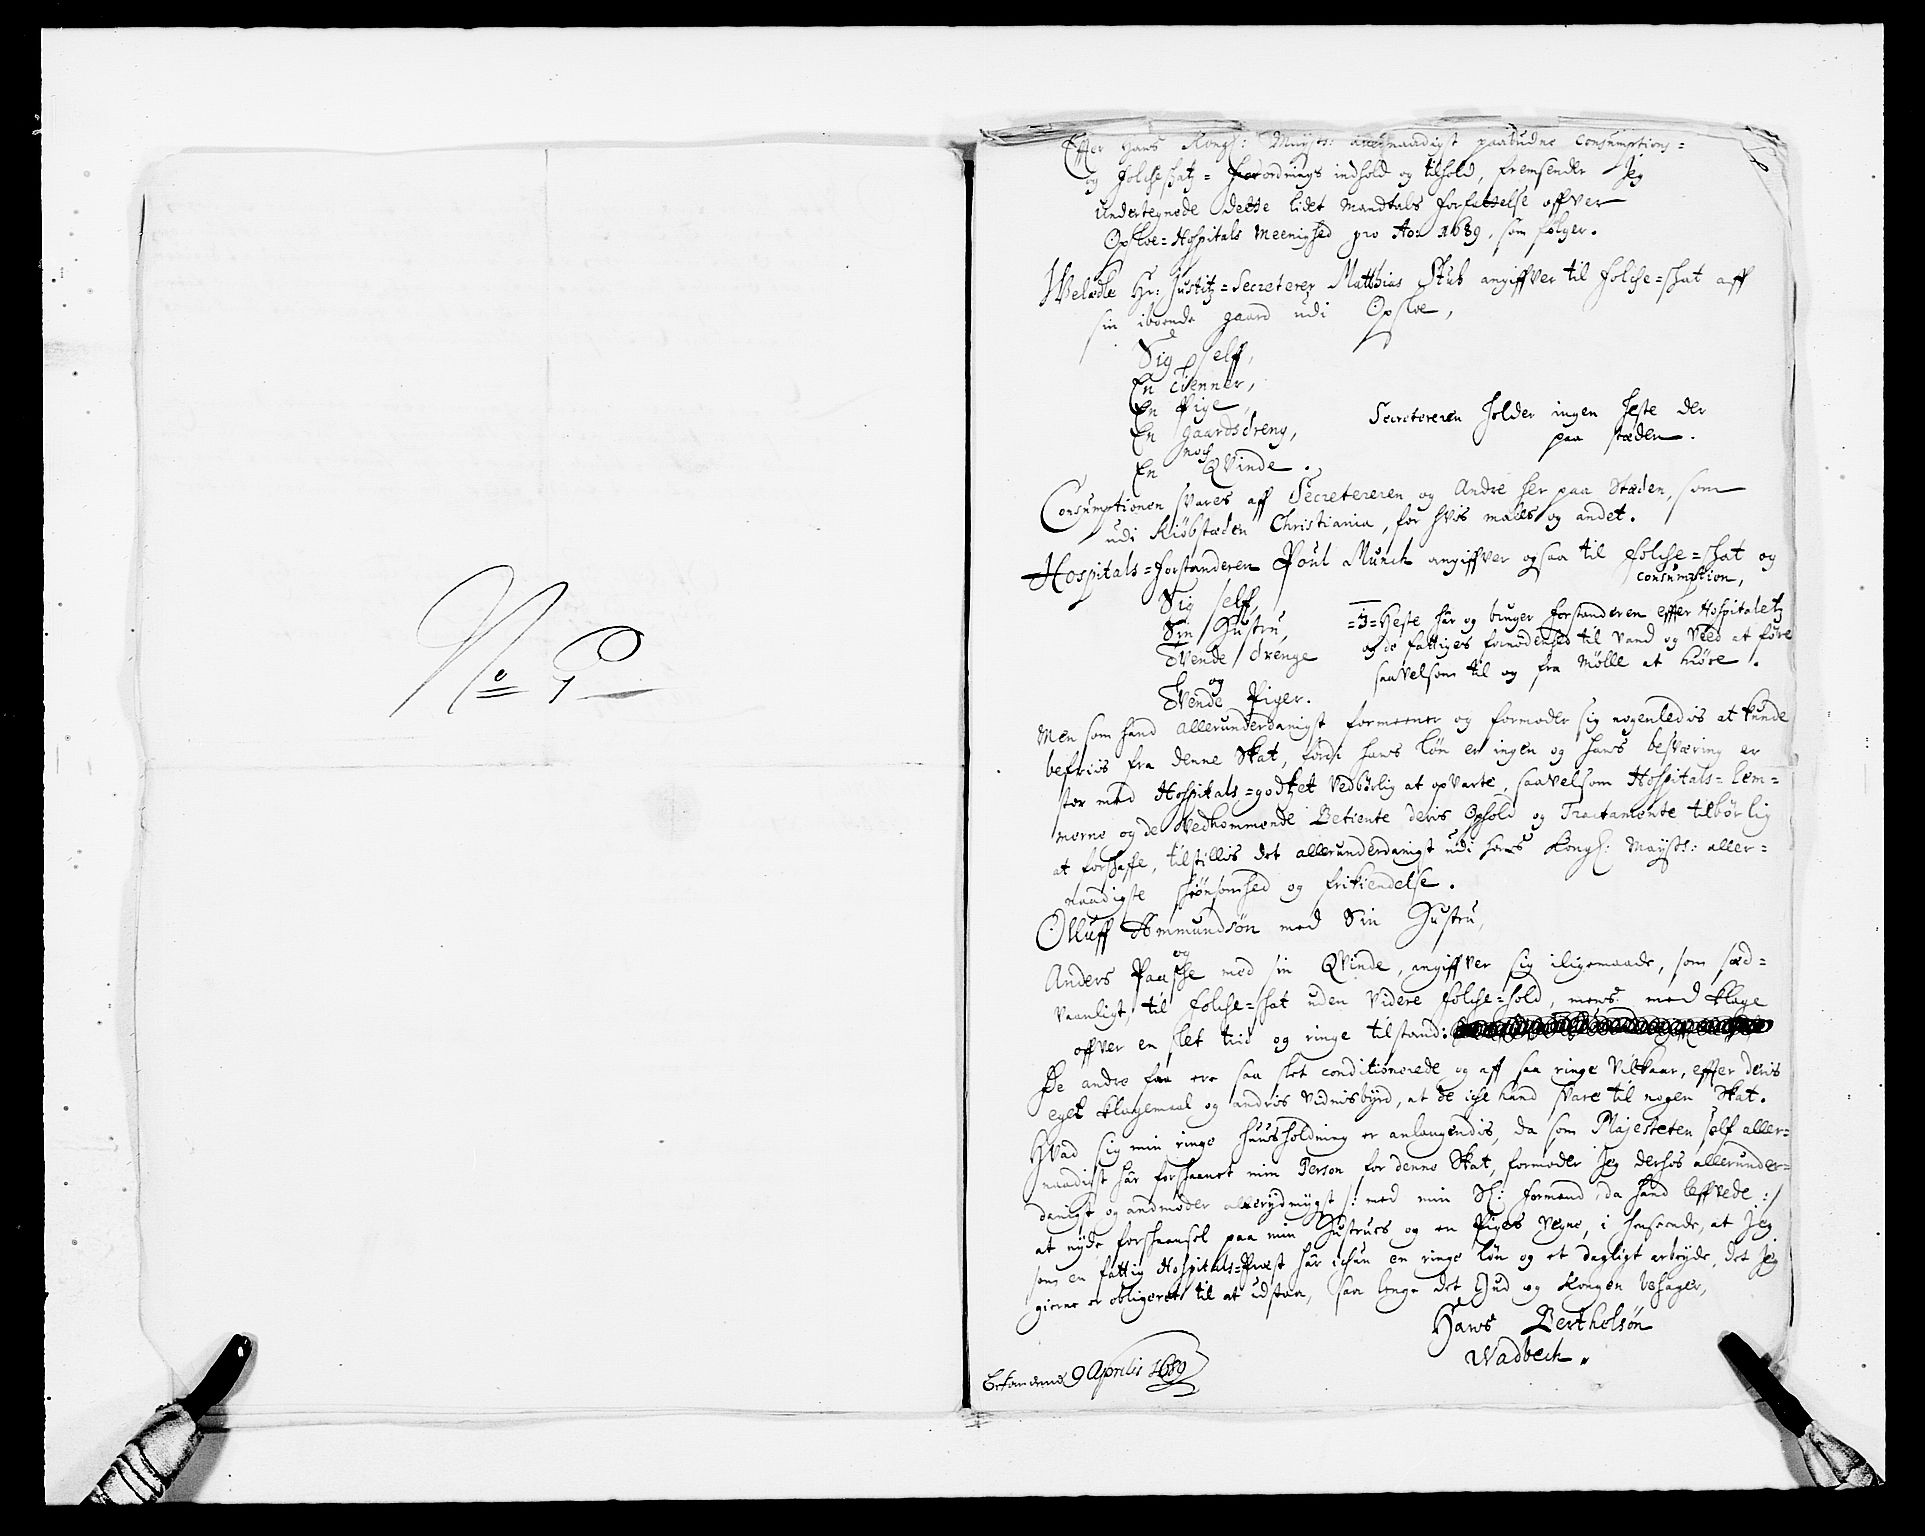 No 9
Effter Hans Kongl: Mayst: allernaadigst paabudne Consumptions=
og Folcheskatz=Forordnings indhold og tilhold, fremsender Jeg
undertegnede dette lidet Mandtals forfattelse offver
Opsloe=Hospitals Meenighed pro Ao: 1689, som følger.
Welædle Hr: Justitz=Secreterer Matthias Stub angiffver til folche=skat aff
sin iboende gaard udi Opsloe,
Sig self,
En tienner,
En Pige,
En gaardsdreng,
noch
En Qvinde.
Secretereren holder ingen heste der
paa stæden.
Consumptionen svares aff Secretereren og Andre her paa Stæden, som
udi Kiøbstæden Christiania, for hvis males og andet.
Hospitals=forstanderen Poul Munch angiffver ogsaa til folche=skat og
Consumption,
Sig self,
Sin Hustru,
Tvende drenge
og
Tvende Piger.
=3=Heste har og bruger forstanderen effter Hospitaletz
og de fattiges fornødenhed til Vand og Veed at føre
saavelsom til og fra Mølle at kiøre.
Men som hand allerunderdanigst formeener og formoder sig nogenledis at kunde
befriis fra denne Skat, fordi hans løn er ingen og hans besværing er
stor med Hospitals=godtzet vedbørlig at opvarte, saavelsom Hospitals=lem=
merne og de vedkommende Betiente deris Ophold og Tractamente tilbørlig
at forskaffe, tilstillis det allerunderdanigst udi hans Kongl: Maysts: aller=
naadigste skiønsomhed og frikiendelse.
Olluff Ammundsøn med Sin Hustru,
og
Anders Paaske med sin Qvinde, angiffver sig iligemaade, som sæd=
vaanligt, til folche=skat uden videre folche=hold, mens med klage
offver en slet tiid og ringe tilstand:
De andre faa ere saa slet conditionerede og aff saa ringe Vilkaar, effter deris
eget klagemaal og andris vidnisbyrd, at de iche kand svare til nogen Skat.
Hvad sig min ringe huusholdning er anlangendis, da som Majesteten self aller=
naadigst har forskaanet min Person for denne Skat, formoder Jeg derhos allerunder=
danigst og andmoder allerydmygst /: med min Sl: formand, da hand leffvede :/
at nyde forskaansel paa min Hustrues og en Piges vegne, i henseende, at Jeg
som en fattig Hospitals=Præst har ichun en ringe løn og et dagligt arbeyde, det Jeg
gierne er obligeret til at udstaa, saa lenge det Gud og Kongen behager,
Hans Bertholsøn
Wadbech.
9 Aprilis 1689